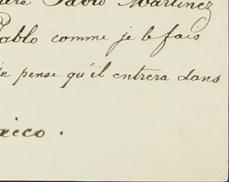 Pavio Martinez
Pablo comme je le fais
je pense qu'il entrera dans